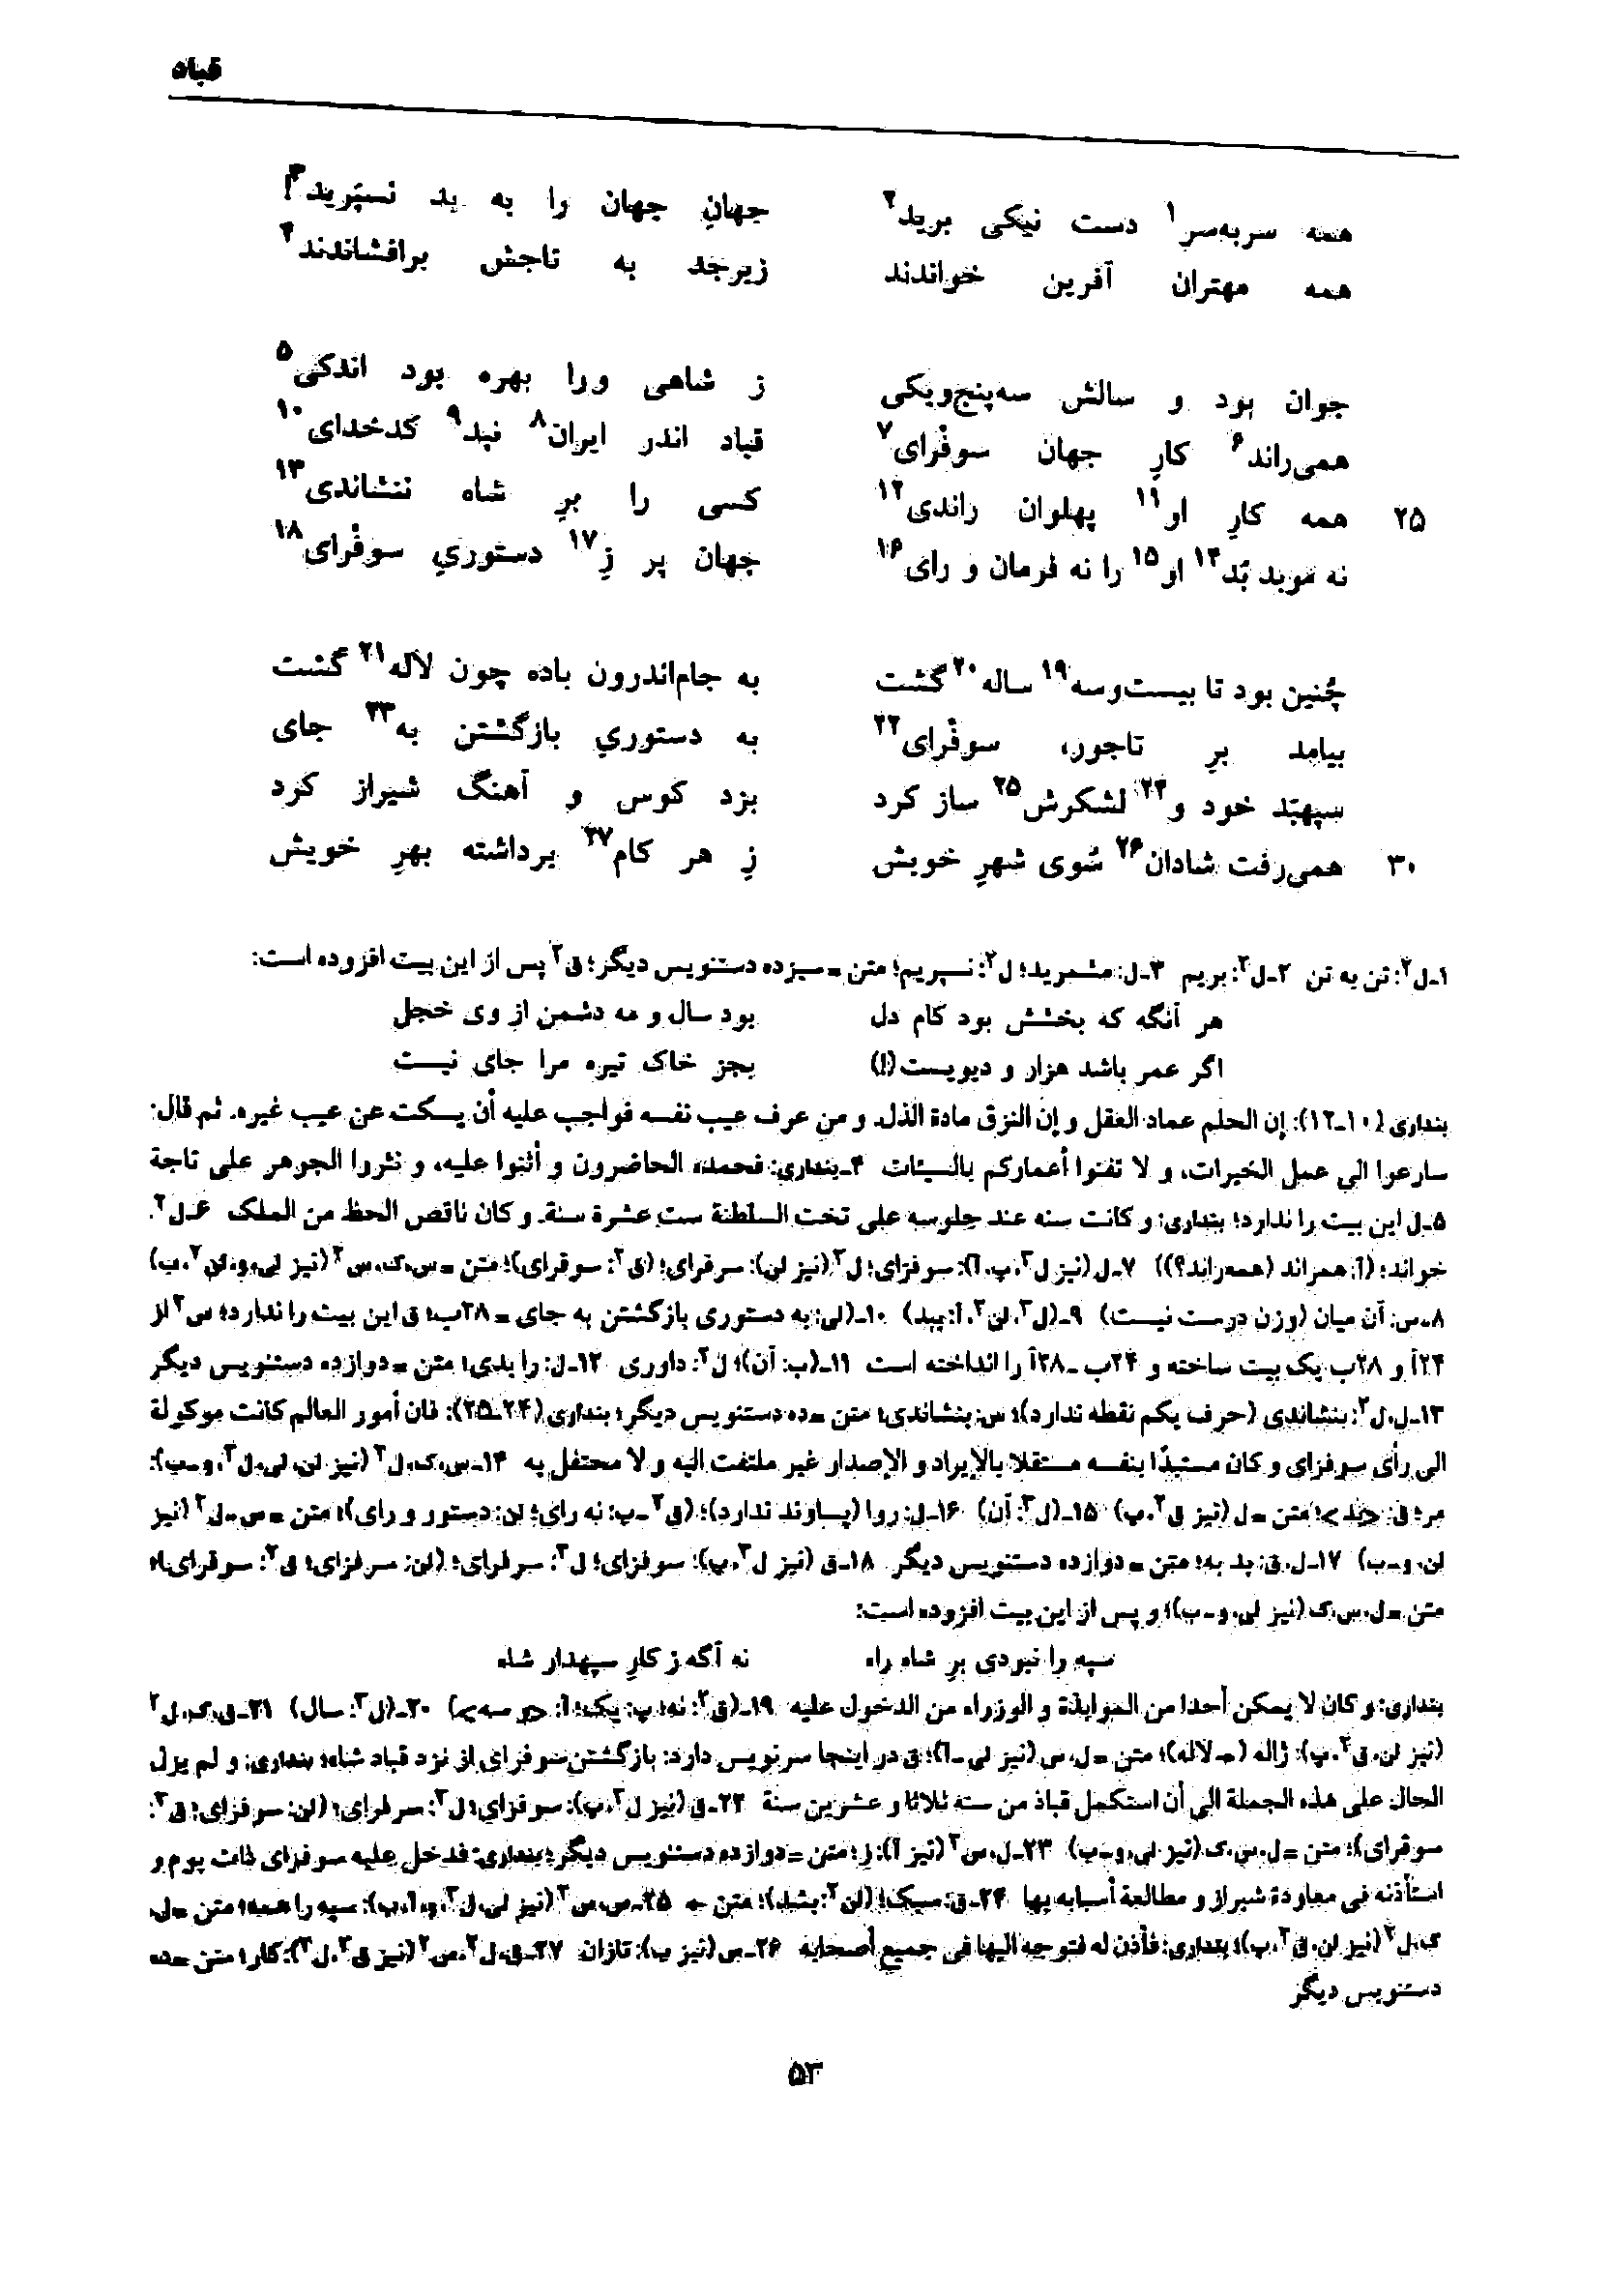 قباد
همه سربه‌سر۱ دست نیکی برید۲ جهانِ جهان را به بد نسپَرید۳!
همه مهتران آفرین خواندند زبرجد به تاجش برافشاندند۴
جوان بود و سالش سه‌پنج‌ویکی ز شاهی ورا بهره بود اندکی۵
همی‌راند۶ کارِ جهان سوفْرای۷ قباد اندر ایران۸ نبد۹ کدخدای۱۰
۲۵ همه کارِ او۱۱ پهلوان راندی۱۲ کسی را برِ شاه ننشاندی۱۳
نه موبد بُد۱۴ او۱۵ را نه فرمان و رای۱۶ جهان پر زِ۱۷ دستوریِ سوفْرای۱۸
چُنین بود تا بیست‌وسه۱۹ ساله۲۰ گشت به جام‌اندرون باده چون لاله۲۱ گشت
بیامد برِ تاجور، سوفْرای۲۲ به دستوریِ بازگشتن به۲۳ جای
سپهبَد خود و۲۴ لشکرش۲۵ ساز کرد بزد کوس و آهنگ شیراز کرد
۳۰ همی‌رفت شادان۲۶ سُوی شهرِ خویش زِ هر کام۲۷ برداشته بهرِ خویش
۱ـ ل۲: تن به تن ۲ـ ل۲: بریم ۳ـ ل: مشمرید؛ ل۲: نسپریم؛ متن = سیزده دستنویس دیگر؛ ق۲ پس از این بیت افزوده است:
هر آنگه که بخشش بود کام دل بود سال و مه دشمن از وی خجل
اگر عمر باشد هزار و دویست(!) بجز خاک تیره مرا جای نیست
بنداری (۱۰ـ۱۲): إن الحلم عماد العقل و إن النزق مادة الذل. و من عرف عیب نفسه فواجب علیه أن یسکت عن عیب غیره. ثم قال:
سارعوا الی عمل الخیرات، و لا تفنوا أعمارکم بالسیئات ۴ـ بنداری: فحمده الحاضرون و أثنوا علیه، و نثروا الجوهر علی تاجة
۵ـ ل این بیت را ندارد؛ بنداری: و کانت سنه عند جلوسه علی تخت السلطنة ست عشرة سنة. و کان ناقص الحظ من الملک ۶ـ ل۲:
خواند؛ (آ: همراند (همه‌راند؟)) ۷ـ ل (نیز ل۳، پ، آ): سوفزای؛ ل۲ (نیز لن): سرفرای؛ (ق۲: سوقرای)؛ متن = س، ک، س۲ (نیز لی، و، لن۲، ب)
۸ـ س: آن میان (وزن درست نیست) ۹ـ (ل۳، لن۲، آ: ببد) ۱۰ـ (لی: به دستوری بازگشتن به جای = ۲۸ب؛ ق این بیت را ندارد؛ س۲ از
۲۴آ و ۲۸ب یک بیت ساخته و ۲۴ب ـ ۲۸آ را انداخته است ۱۱ـ (ب: آن)؛ ل۲: داوری ۱۲ـ ل: را بدی؛ متن = دوازده دستنویس دیگر
۱۳ـ ل، ل۲: بنشاندی (حرف یکم نقطه ندارد)؛ س: بنشاندی؛ متن = ده دستنویس دیگر؛ بنداری (۲۴ـ۲۵): فان أمور العالم کانت موکولة
الی رأی سرفزای و کان مستبدًا بنفسه مستقلا بالإیراد و الإصدار غیر ملتفت الیه و لا محتفل به ۱۴ـ س، ک، ل۲ (نیز لن، لی، ل۳، و ـ ب):
مر؛ ق: <بد>؛ متن = ل (نیز ق۲، پ) ۱۵ـ (ل۳: آن) ۱۶ـ ل: روا (پساوند ندارد)؛ (ق۲ ـ ب: نه رای؛ لن: دستور و رای)؛ متن = س ـ ل۲ (نیز
لن، و ـ ب) ۱۷ـ ل، ق: بد به؛ متن = دوازده دستنویس دیگر ۱۸ـ ق (نیز ل۳، پ): سوفزای؛ ل۲: سرفرای؛ (لن: سرفزای؛ ق۲: سوقرای)؛
متن = ل، س، ک (نیز لی، و ـ ب)؛ و پس از این بیت افزوده است:
سپه را نبردی برِ شاه راه نه آگه ز کارِ سپهدار شاه
بنداری: و کان لا یمکن أحدا من الموابذة و الوزراء من الدخول علیه ۱۹ـ (ق۲: نه؛ پ: یک؛ آ: <و سه>) ۲۰ـ (ل۳: سال) ۲۱ـ ق، ک، ل۲
(نیز لن، ق۲، پ): ژاله (ـ لاله)؛ متن = ل، س (نیز لی ـ آ)؛ ق در اینجا سرنویس دارد: بازگشتن سوفزای از نزد قباد شاه؛ بنداری: و لم یزل
الحال علی هذه الجملة الی أن استکمل قباذ من سنه ثلاثا و عشرین سنة ۲۲ـ ق (نیز ل۳، پ): سوفزای؛ ل۲: سرفرای؛ (لن: سوفزای؛ ق۲:
سوقرای)؛ متن = ل، س، ک (نیز لی، و ـ ب) ۲۳ـ ل، س۲ (نیز آ): ز؛ متن = دوازده دستنویس دیگر؛ بنداری: فدخل علیه سوفزای ذات یوم و
استأذنه فی معاودة شیراز و مطالعة أسبابه بها ۲۴ـ ق: سبک؛ (لن۲: بشد)؛ متن ← ۲۵ـ س، س۲ (نیز لی، ل۳، و، آ، ب): سپه را همه؛ متن = ل،
ک، ل۲ (نیز لن، ق۲، پ)؛ بنداری: فأذن له فتوجه الیها فی جمیع أصحابه ۲۶ـ س (نیز ب): تازان ۲۷ـ ق، ل۲، س۲ (نیز ق۲، ل۳): کار؛ متن = ده
دستنویس دیگر
۵۳